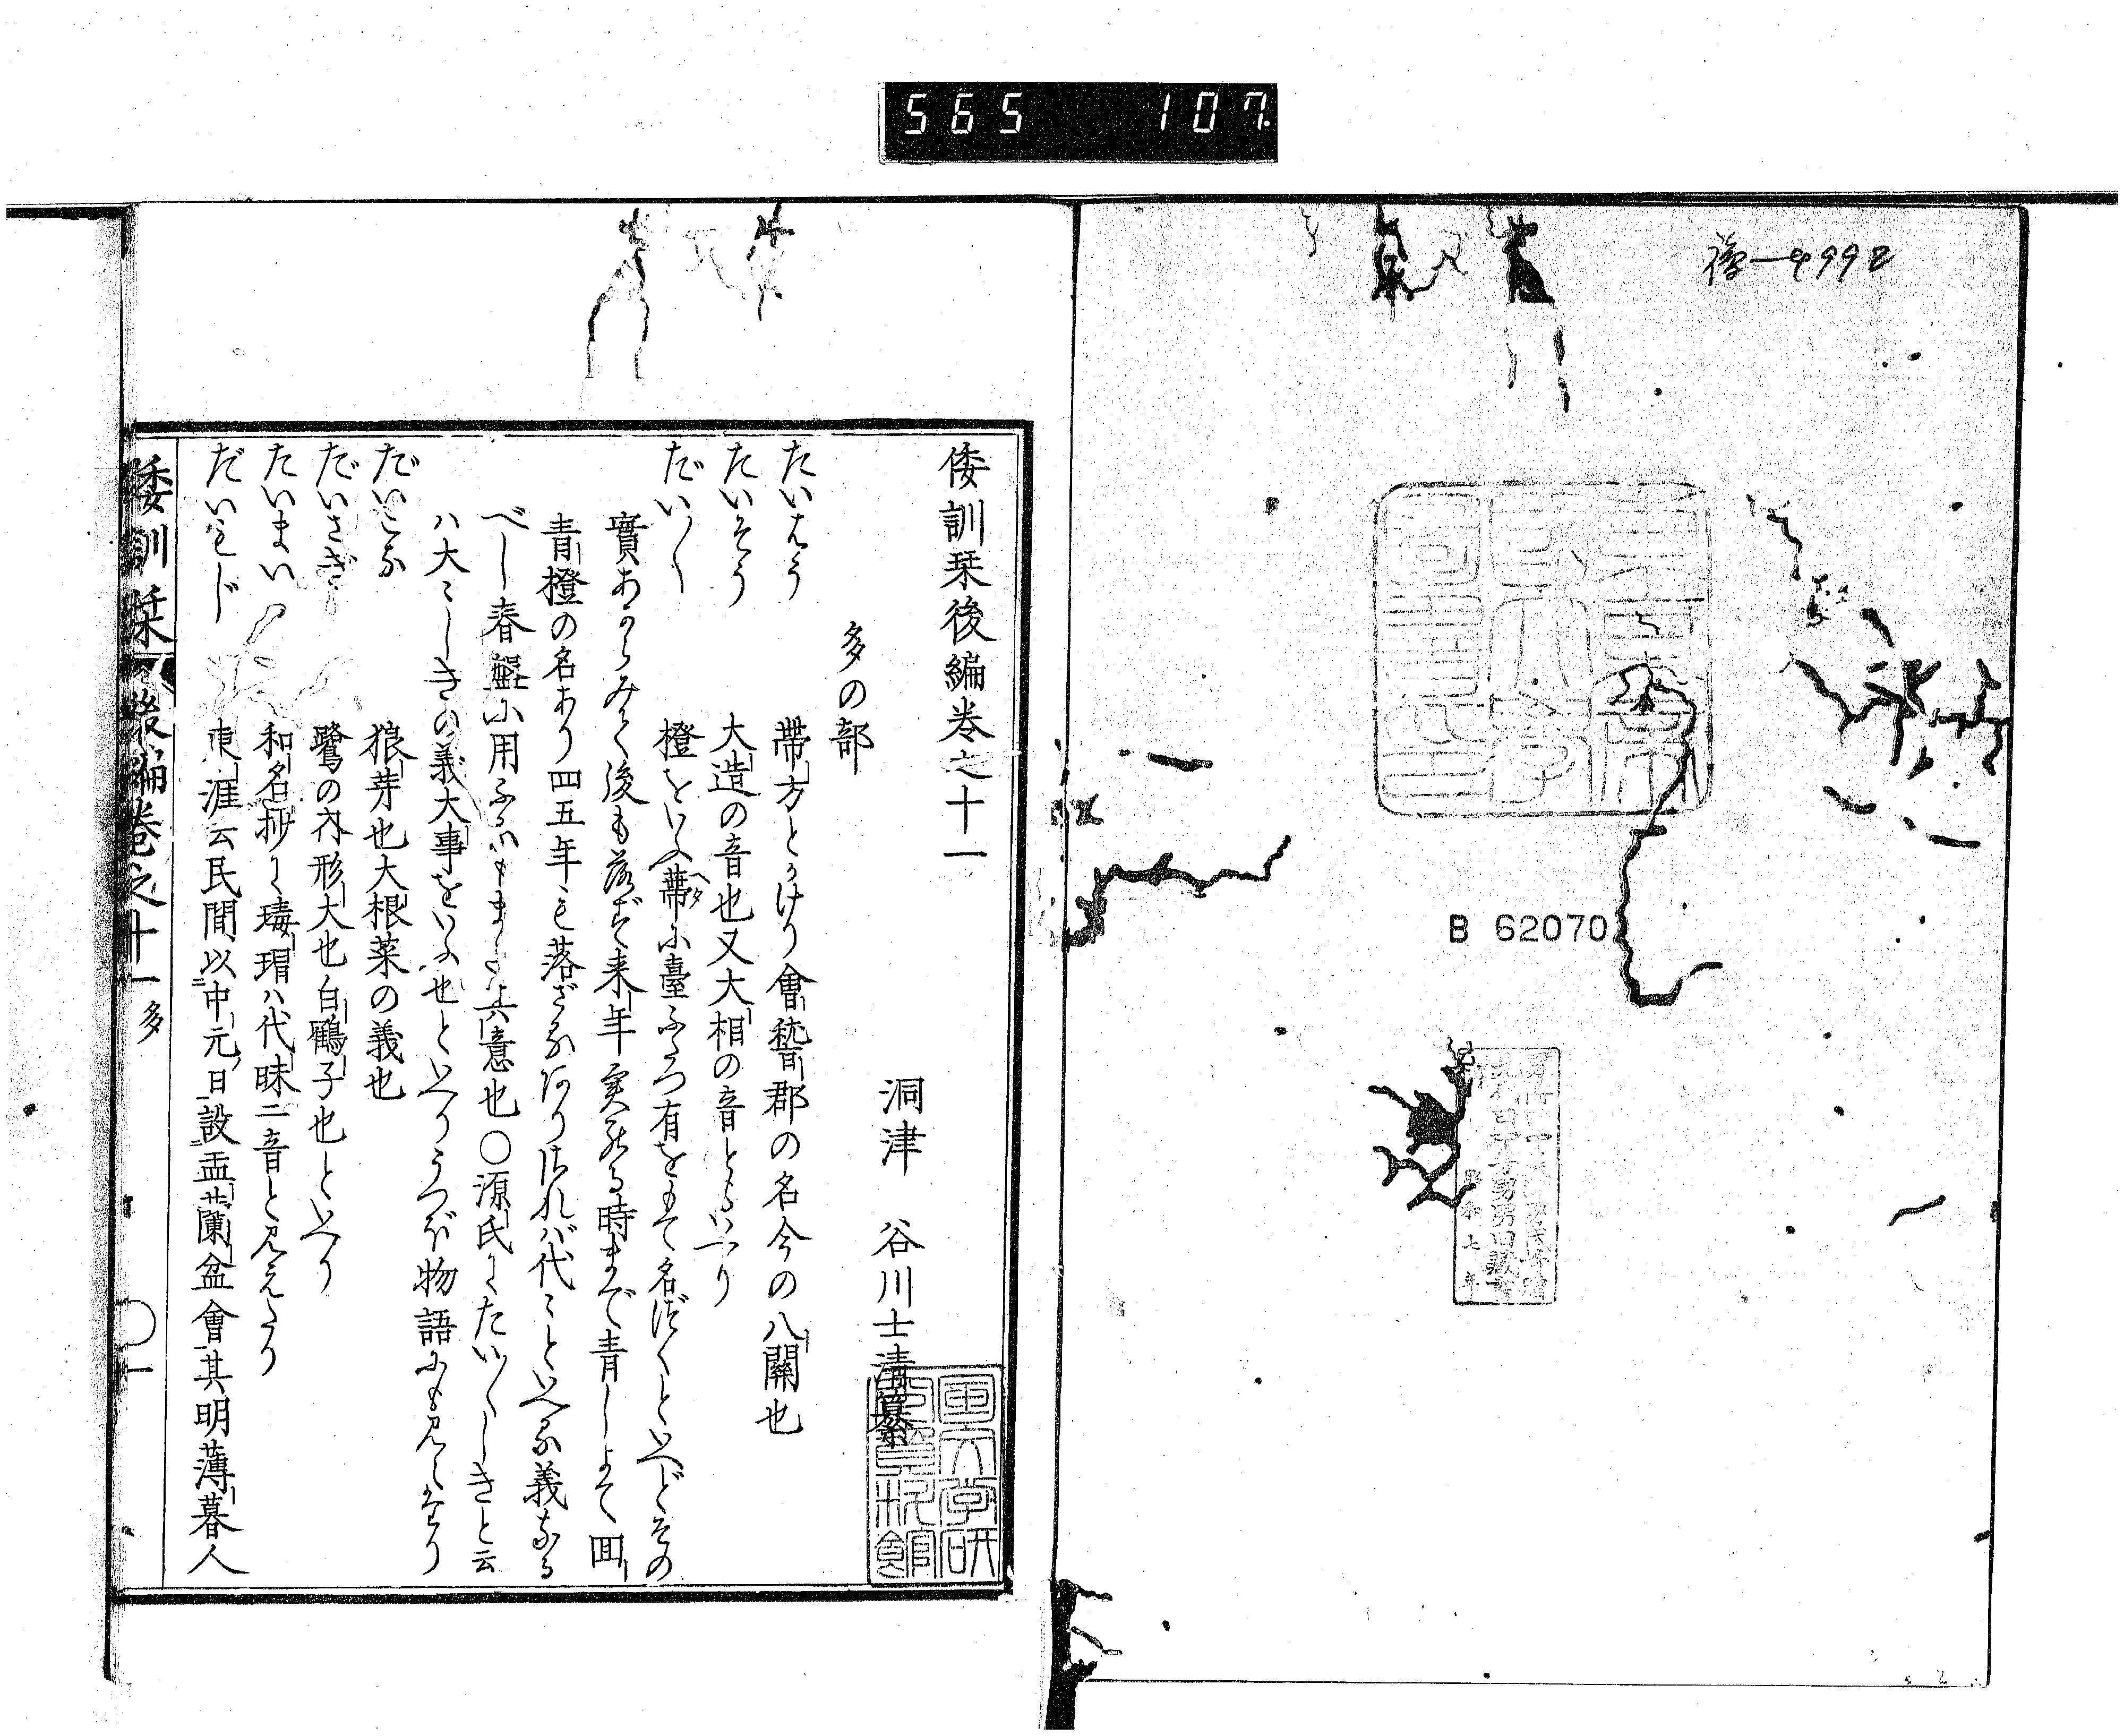 565 107
4992
B 62070
倭訓栞後編卷之十一
洞津 谷川士清纂
多の部
たいはう 帶方とかけり會稽郡の名今の八關也
たいそう 大造の音也又大相の音ともいへり
だい〱 橙をいふ蔕に臺ふたつ有をもて名づくといへどその
實あからみて後も落ず来年実のる時まで青しよて回
青橙の名あり四五年も落ざるなりされば代〻といへる義なる
べし春盤に用ふるハもま其意也〇源氏にたい〱しきと云
ハ大〻しきの義大事をいふ也といへりうつぼ物語にも見えたり
だいこな 狼芽也大根菜の義也
だいさぎ 鷺の形大也白鶴子也といへり
たいまい 和名抄に瑇瑁ハ代昧二音と見えたり
だいもじ 東涯云民間以中元日設盂蘭盆會其明薄暮人
倭訓栞 後編卷之十一 多 〇一